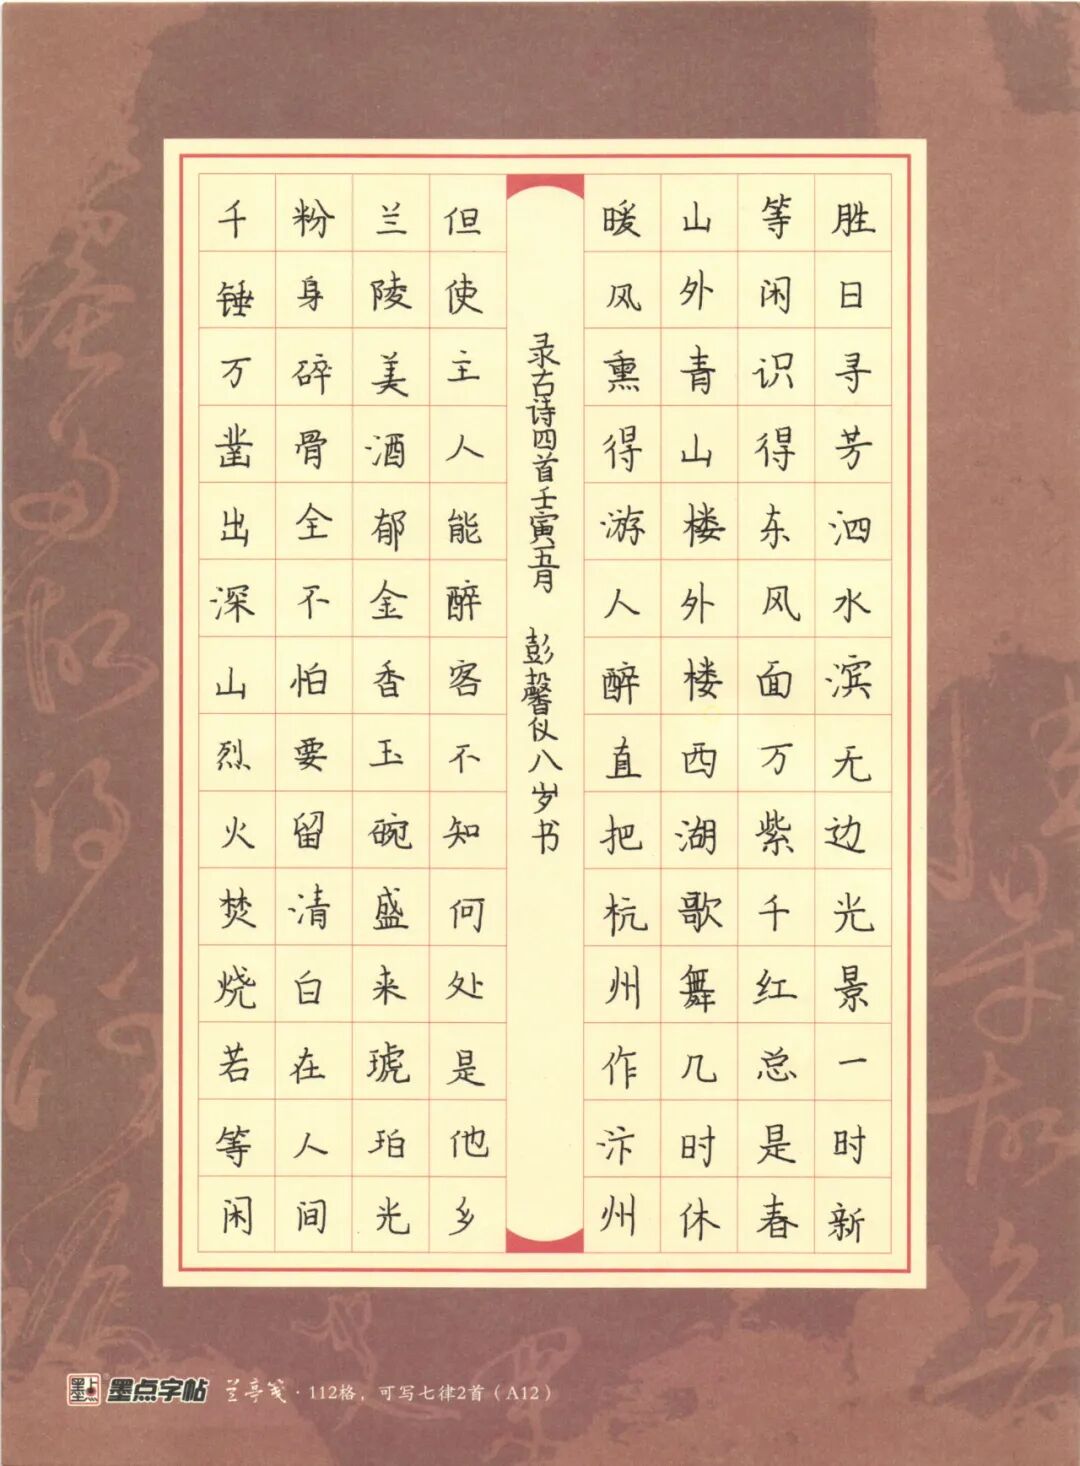 胜日寻芳泗水滨无边光景一时新
等闲识得东风面万紫千红总是春
山外青山楼外楼西湖歌舞几时休
暖风熏得游人醉直把杭州作汴州
录古诗四首壬寅五月 彭馨仪八岁书
但使主人能醉客不知何处是他乡
兰陵美酒郁金香玉碗盛来琥珀光
粉身碎骨全不怕要留清白在人间
千锤万凿出深山烈火焚烧若等闲
墨点字帖 兰亭笺·112格，可写七律2首（A12）